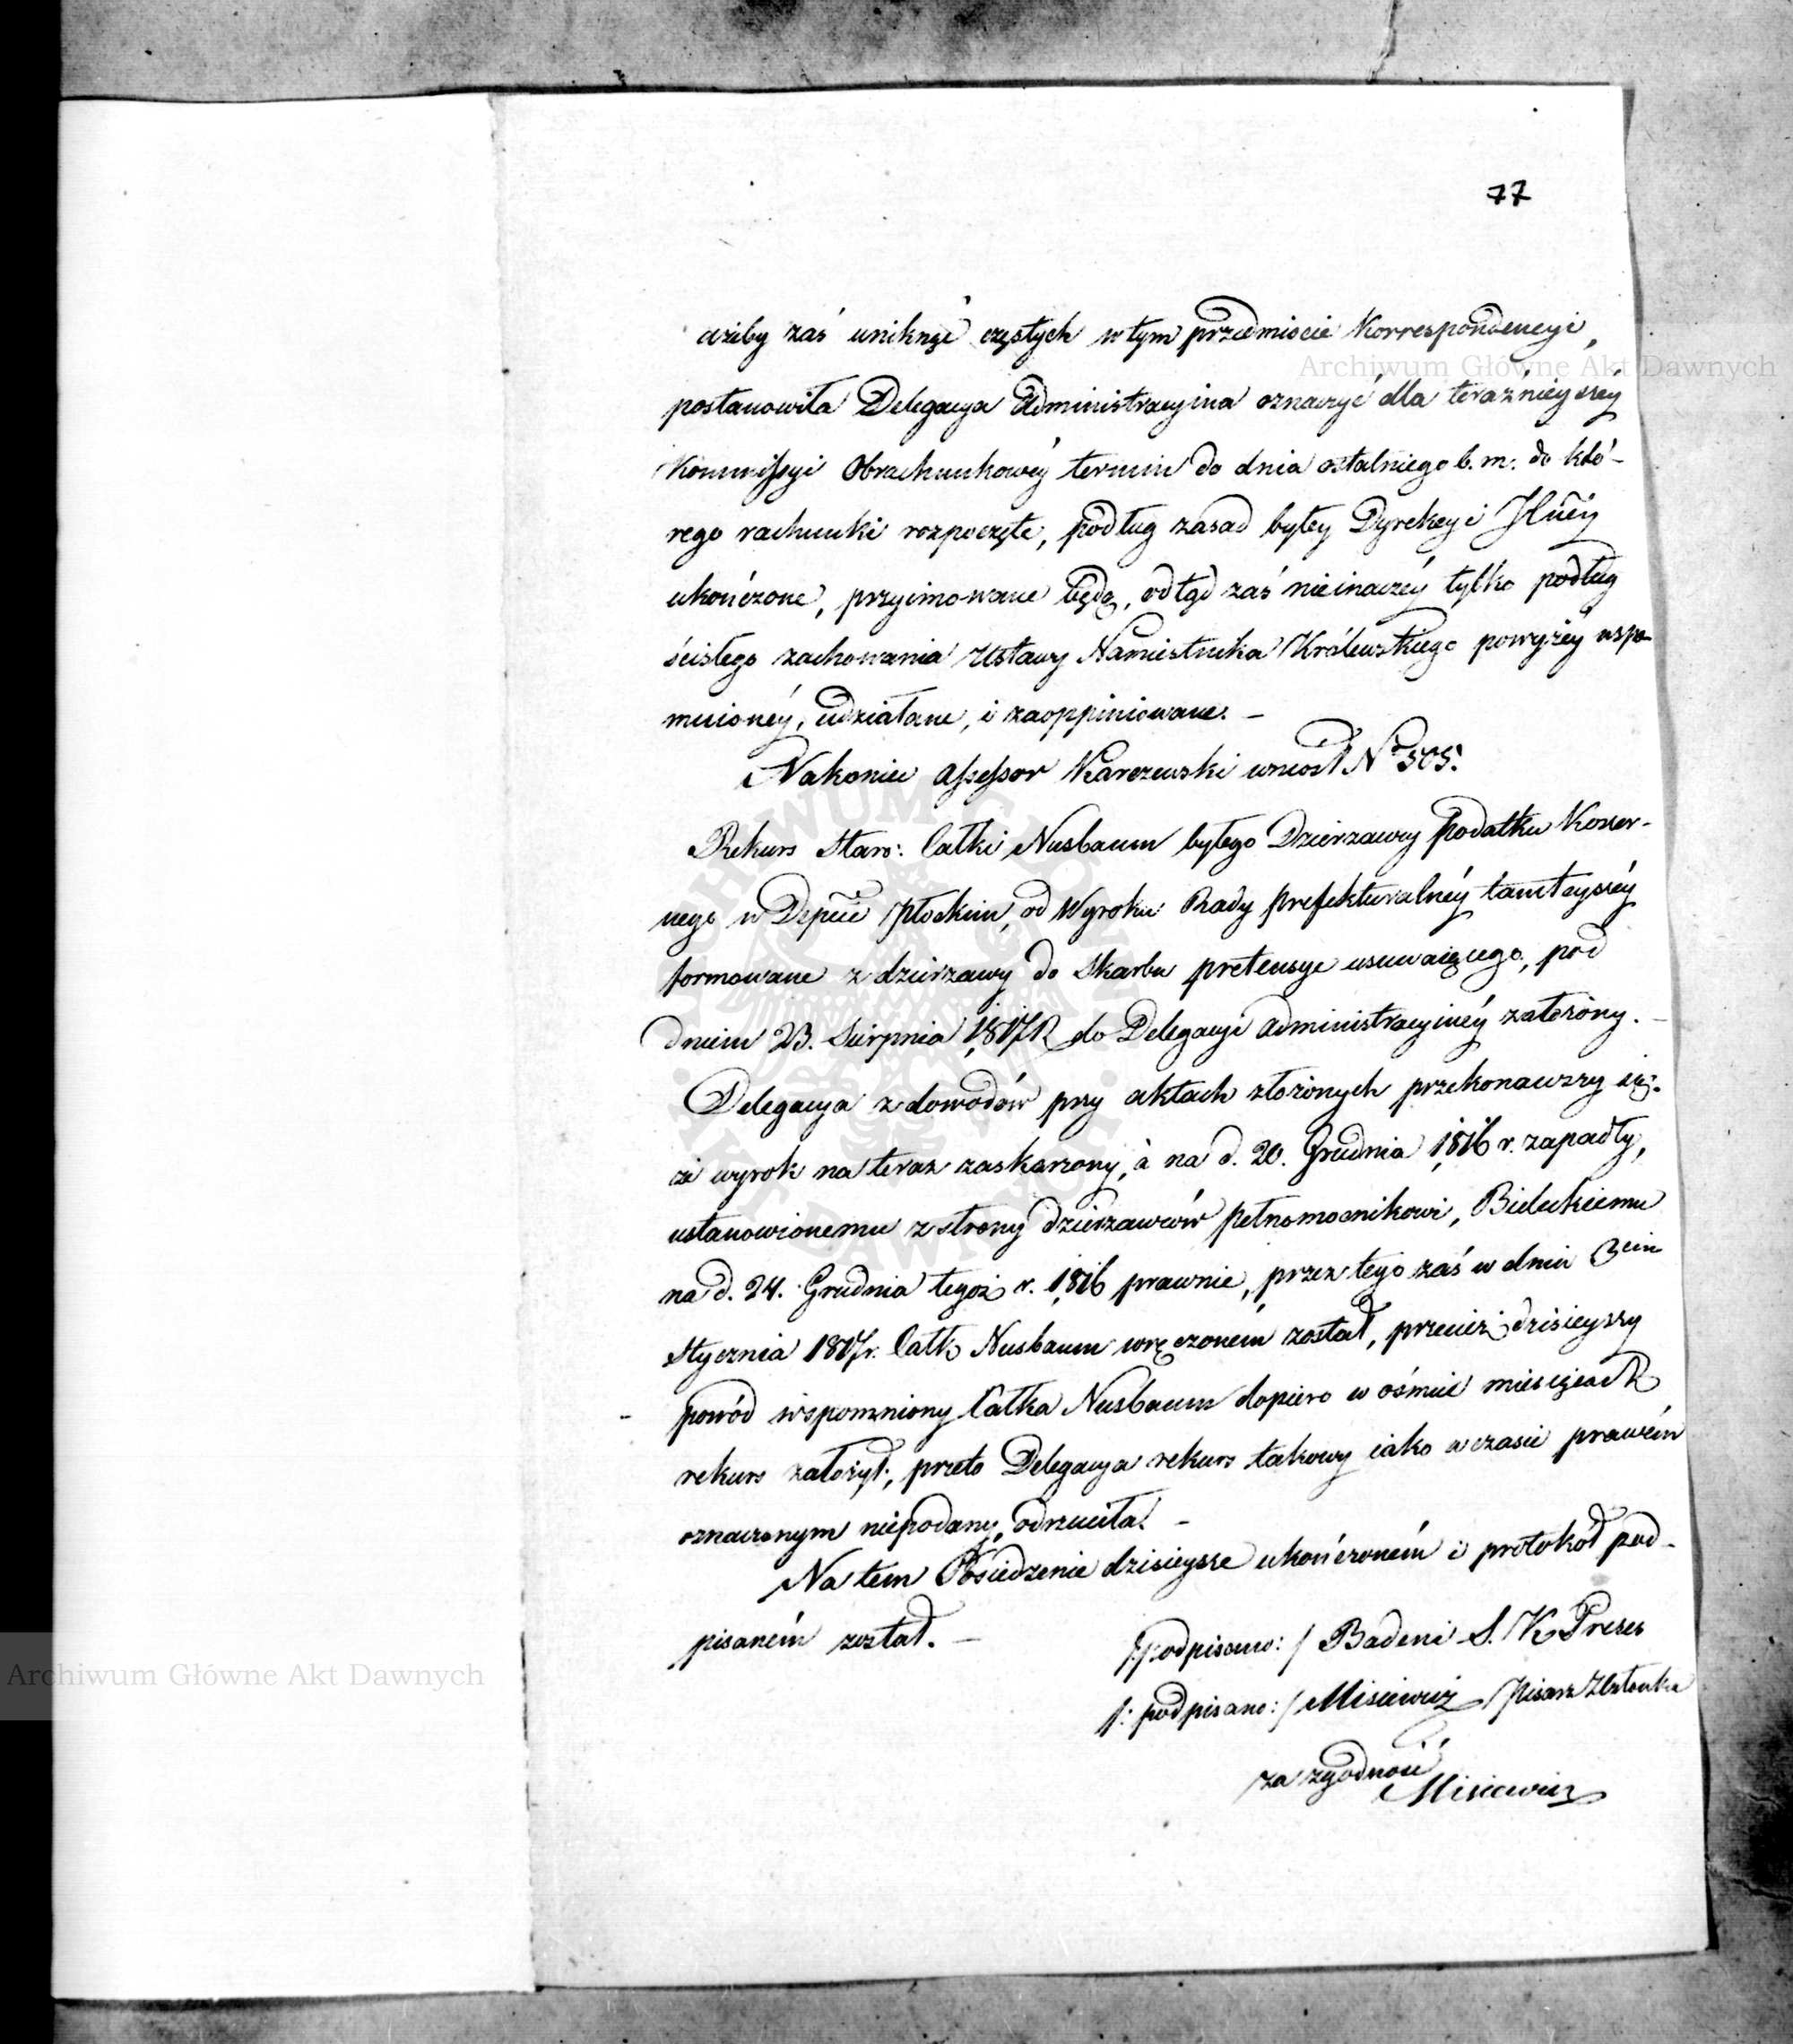 77
ażeby zaś uniknąć częstych w tym przedmiocie Korrespondencyi,
Archiwum Główne Akt Dawnych
postanowiła Delegacya Administracyina oznaczyć dla teraźnieyszéy
Kommissyi Obrachunkowéy termin do dnia ostatniego b. m. do któ-
rego rachunki rozpoczęte, podług zasad byłey Dyrekcyi Jlnéy
ukończone, przyimowane będą, odtąd zaś nieinaczéy tylko podług
ścisłego zachowania Ustawy Namiestnika Królewskiego powyżéy wspo-
mnionéy, udziałane, i zaoppiniowane. —
Nakoniec Assessor Karczewski wniosł No 505.
Rekurs Staro: Catki Nusbaum byłego Dzierzawcy podatku Koszer-
nego w Depcie Płockim, od Wyroku Rady prefekturalnéy tamteyszéy
formowane z dzierzawy do Skarbu pretensye usuwaiącego, pod
dniem 23. Sierpnia 1817 R do Delegacyi Administracyinéy założony. —
Delegacya z dowodów przy aktach złożonych przekonawszy się.
że wyrok na teraz zaskarzony, à na d. 20. Grudnia 1816 r. zapadły,
ustanowionemu z strony dzierzawców pełnomocnikowi, Bieleckiemu
na d. 24. Grudnia tegoż r. 1816 prawnie, przez tego zaś w dniu 3cim
Stycznia 1817 r. Catk Nusbaum wręczoném został, przecież dzisieyszy
powód wspomniony Catka Nusbaum dopiero w ośmiu miesiącach
rekurs założył, przeto Delegacya rekurs takowy iako w czasie prawém
oznaczonym niepodany, odrzuciła. —
Na tem Posiedzenie dzisieysze ukończoném i protokół pod-
pisaném został. —
/:podpisano:/ Badeni S. K. Prezes
/:podpisano:/ Misiewicz Pisarz
Archiwum Główne Akt Dawnych
za zgodność
Misiewicz